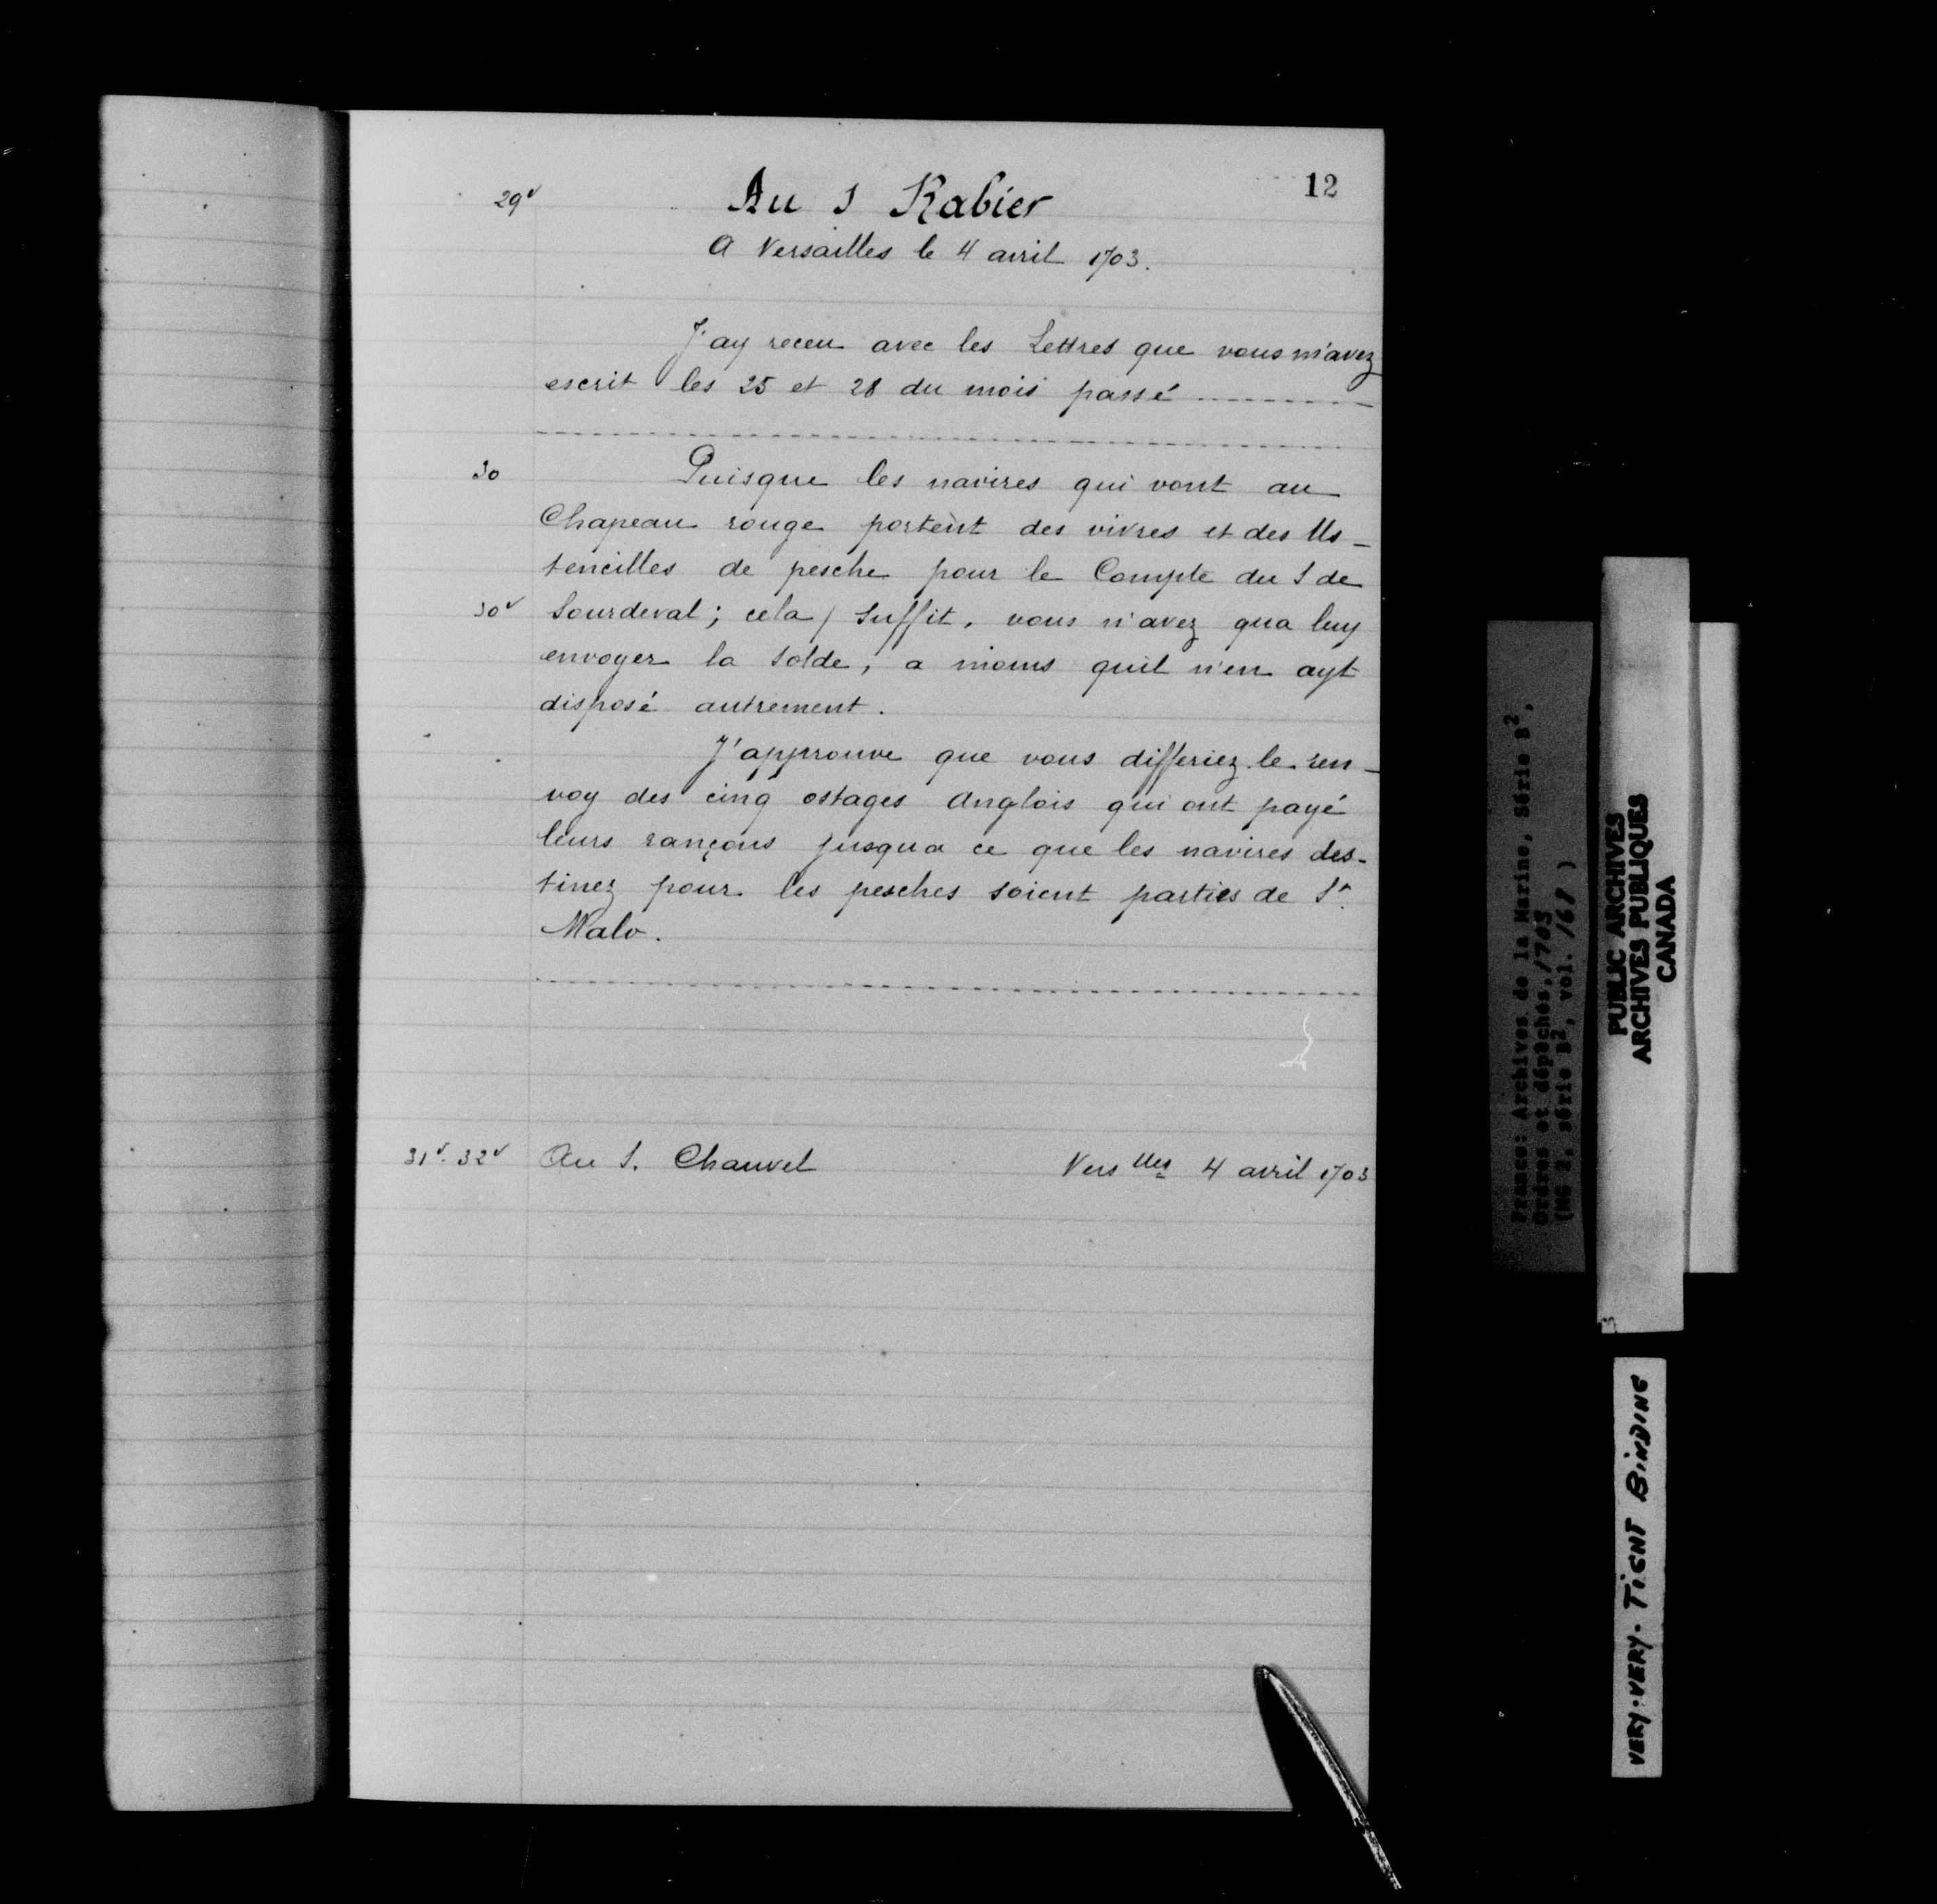 12
29v Au S Rabier
A Versailles le 4 avril 1703.
J'ay receu avec les Lettres que vous m'avez
escrit les 25 et 28 du mois passé
30 Puisque les navires qui vont au
Chapeau rouge portent des vivres et des Us-
tencilles de pesche pour le Compte du S de
30v Sourdeval; cela / suffit, vous n'avez qua luy
envoyer la solde, a moins quil n'en ayt
disposé autrement.
J'approuve que vous differiez le ren-
voy des cinq ostages Anglois qui ont payé
leurs rançons jusqua ce que les navires des-
tinez pour les pesches soient parties de St.
Malo.
31v. 32v Au S. Chauvel Verslles 4 avril 1703
France: Archives de la Marine, Série B2,
Ordres et dépêches, 1703
(MG 2, série B2, vol. 168)
PUBLIC ARCHIVES
ARCHIVES PUBLIQUES
CANADA
3
VERY-VERY-TIGHT BINDING